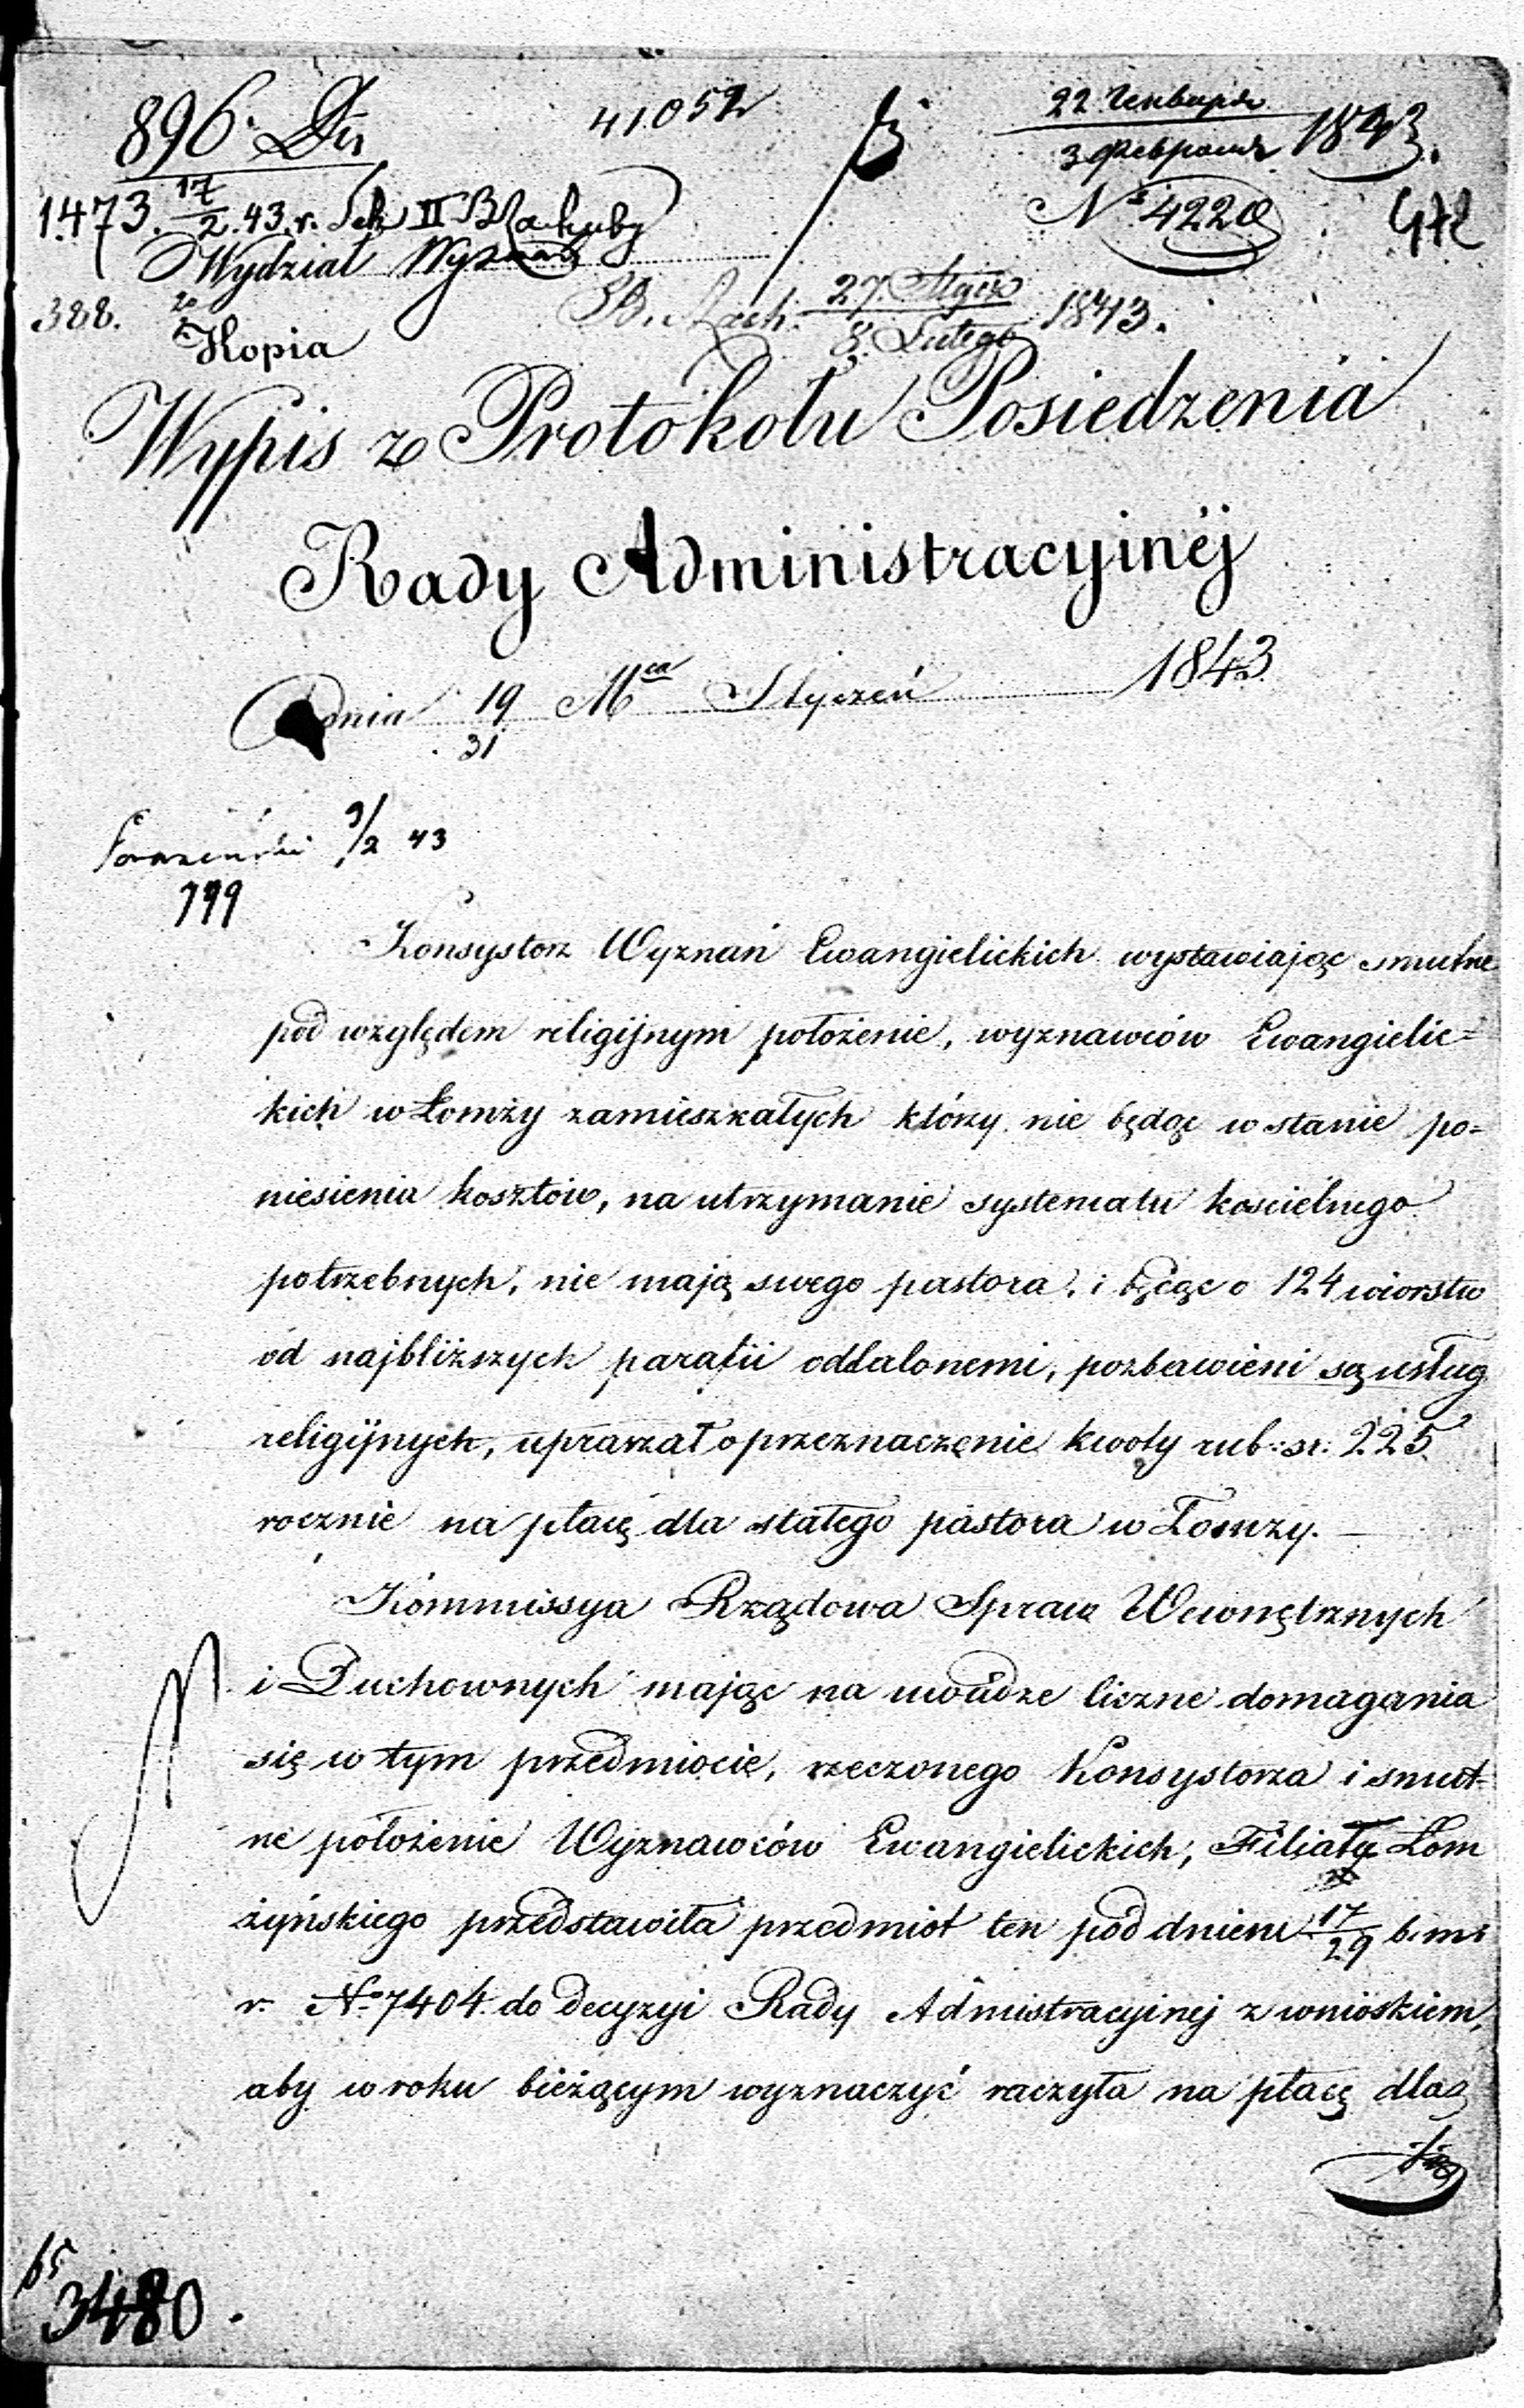 896.
41052
22 Генваря
3 Февраля 1843.
1473. 17/2.43. r. Sek II B
Nº 4220
Wydział Wyznań
388.
B. Rach: 27 Stycz 8 Lutego 1843.
Kopia
Wypis z Protokołu Posiedzenia
Rady Administracyinéj
dnia 19 Mca Styczeń 1843
31
9/2 43
799
Konsystorz Wyznań Ewangielickich wystawiając smutne
pod względem religijnym położenie, wyznawców Ewangielic=
kich w Łomży zamieszkałych którzy nie będąc w stanie po=
niesienia kosztów, na utrzymanie systematu kościelnego
potrzebnych, nie mają swego pastora, i będąc o 124 wiorstw
od najbliższych parafii oddalonemi, pozbawieni są usług
religijnych, upraszał o przeznaczenie kwoty rub: sr: 225
rocznie na płacę dla stałego pastora w Łomży.—
Kommissya Rządowa Spraw Wewnętrznych
i Duchownych mając na uwadze liczne domagania
się w tym przedmiocie, rzeczonego Konsystorza i smut=
ne położenie Wyznawców Ewangielickich, Filiału Łom
żyńskiego przedstawiła przedmiot ten pod dniem 17/29 b. m. i
r. Nº 7404. do decyzyi Rady Admistracyinej z wnioskiem,
aby w roku bieżącym wyznaczyć raczyła na płacę dla
65
3480.